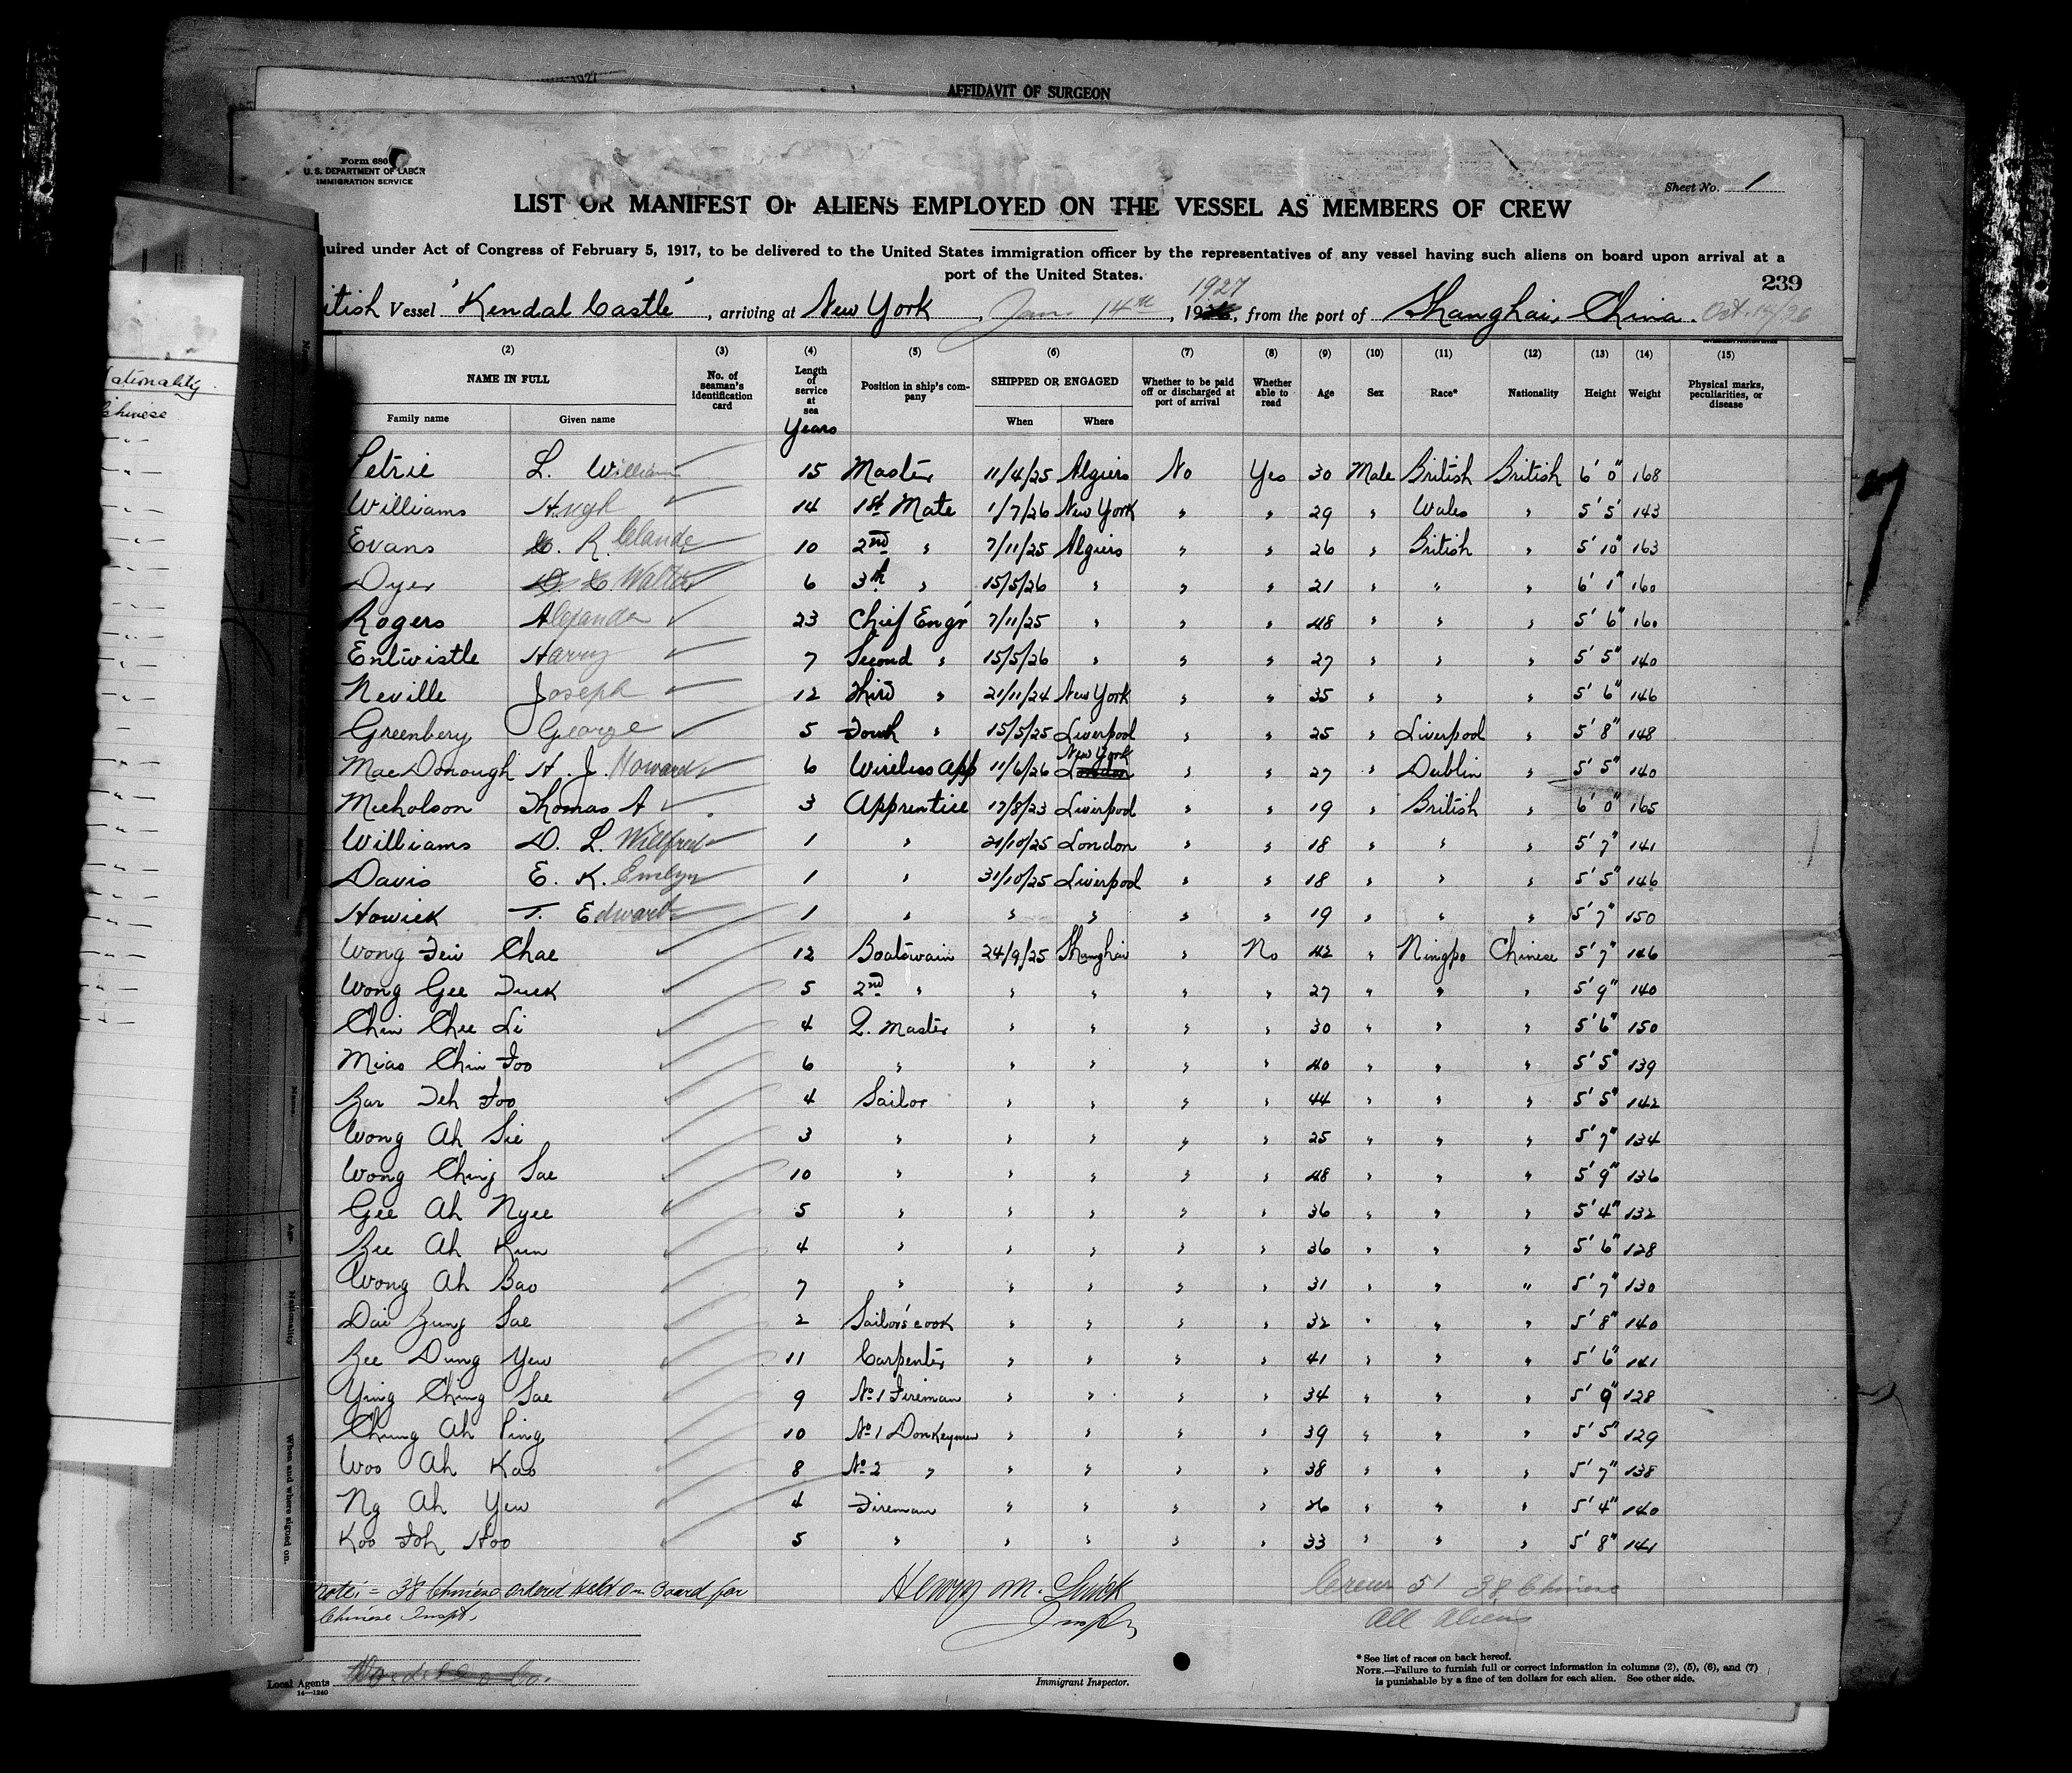 1927
AFFIDAVIT OF SURGEON
Form 680
U. S. DEPARTMENT OF LABOR
IMMIGRATION SERVICE
Sheet No. 1
LIST OR MANIFEST OF ALIENS EMPLOYED ON THE VESSEL AS MEMBERS OF CREW
quired under Act of Congress of February 5, 1917, to be delivered to the United States immigration officer by the representatives of any vessel having such aliens on board upon arrival at a
port of the United States.
239
itish Vessel "Kendal Castle", arriving at New York, Jan. 14th, 1927, from the port of Shanghai, China. Oct. /26
(2) (3) (4) (5) (6) (7) (8) (9) (10) (11) (12) (13) (14) (15)
NAME IN FULL No. of seaman's identification card Length of service at sea Position in ship's company SHIPPED OR ENGAGED Whether to be paid off or discharged at port of arrival Whether able to read Age Sex Race* Nationality Height Weight Physical marks, peculiarities, or disease
Family name Given name Years When Where
Petrie L. William 15 Master 11/4/25 Algiers No Yes 30 Male British British 6' 0" 168
Williams Hugh 14 1st Mate 1/7/26 New York " " 29 " Wales " 5' 5" 143
Evans R. Claude 10 2nd " 7/11/25 Algiers " " 26 " British " 5' 10" 163
Dyer Walter 6 3th " 15/5/26 " " " 21 " " " 6' 1" 160
Rogers Alexander 23 Chief Engr 7/11/25 " " " 48 " " " 5' 6" 160
Entwistle Harry 7 Second " 15/5/26 " " " 27 " " " 5' 5" 140
Neville Joseph 12 Third " 21/11/24 New York " " 35 " " " 5' 6" 146
Greenbery George 5 Fourth " 15/5/25 Liverpool " " 25 " Liverpool " 5' 8" 148
MacDonough H. J. Howard 6 Wireless App 11/6/26 New York London " " 27 " Dublin " 5' 5" 140
Micholson Thomas A 3 Apprentice 17/8/23 Liverpool " " 19 " British " 6' 0" 165
Williams D. L. Wilfred 1 " 21/10/25 London " " 18 " " " 5' 7" 141
Davis E. K. Emlyn 1 " 31/10/25 Liverpool " " 18 " " " 5' 5" 146
Howick T. Edward 1 " " " " " 19 " " " 5' 7" 150
Wong Feiv Chae 12 Boatswain 24/9/25 Shanghai " No 42 " Ningpo Chinese 5' 7" 146
Wong Gee Tuck 5 2nd " " " " " 27 " " " 5' 9" 140
Chin Chee Li 4 Q. Master " " " " 30 " " " 5' 6" 150
Miao Chin Foo 6 " " " " " 40 " " " 5' 5" 139
Zar Teh Foo 4 Sailor " " " " 44 " " " 5' 5" 142
Wong Ah Sie 3 " " " " " 25 " " " 5' 7" 134
Wong Ching Sae 10 " " " " " 48 " " " 5' 9" 136
Gee Ah Nyee 5 " " " " " 36 " " " 5' 4" 132
Zee Ah Kun 4 " " " " " 36 " " " 5' 6" 128
Wong Ah Bao 7 " " " " " 31 " " " 5' 7" 130
Dai Zung Sae 2 Sailors cook " " " " 32 " " " 5' 8" 140
Zee Dung Yew 11 Carpenter " " " " 41 " " " 5' 6" 141
Ying Ching Sae 9 No 1 Fireman " " " " 34 " " " 5' 9" 128
Chung Ah Ping 10 No 1 Donkeyman " " " " 39 " " " 5' 5" 129
Woo Ah Kao 8 No 2 " " " " " 38 " " " 5' 7" 138
Ng Ah Yew 4 Fireman " " " " 26 " " " 5' 4" 140
Koo Foh Hoo 5 " " " " " 33 " " " 5' 8" 141
note: = 38 Chinese ordered held on Board for
Chinese Inspt.
Henry M.
Inspt
Crew 51 38 Chinese
All aliens
Local Agents
14—1240
Immigrant Inspector.
* See list of races on back hereof.
NOTE.—Failure to furnish full or correct information in columns (2), (5), (6), and (7)
is punishable by a fine of ten dollars for each alien. See other side.
ationality.
Chinese
Name
Age
Nationality
When and where signed on.